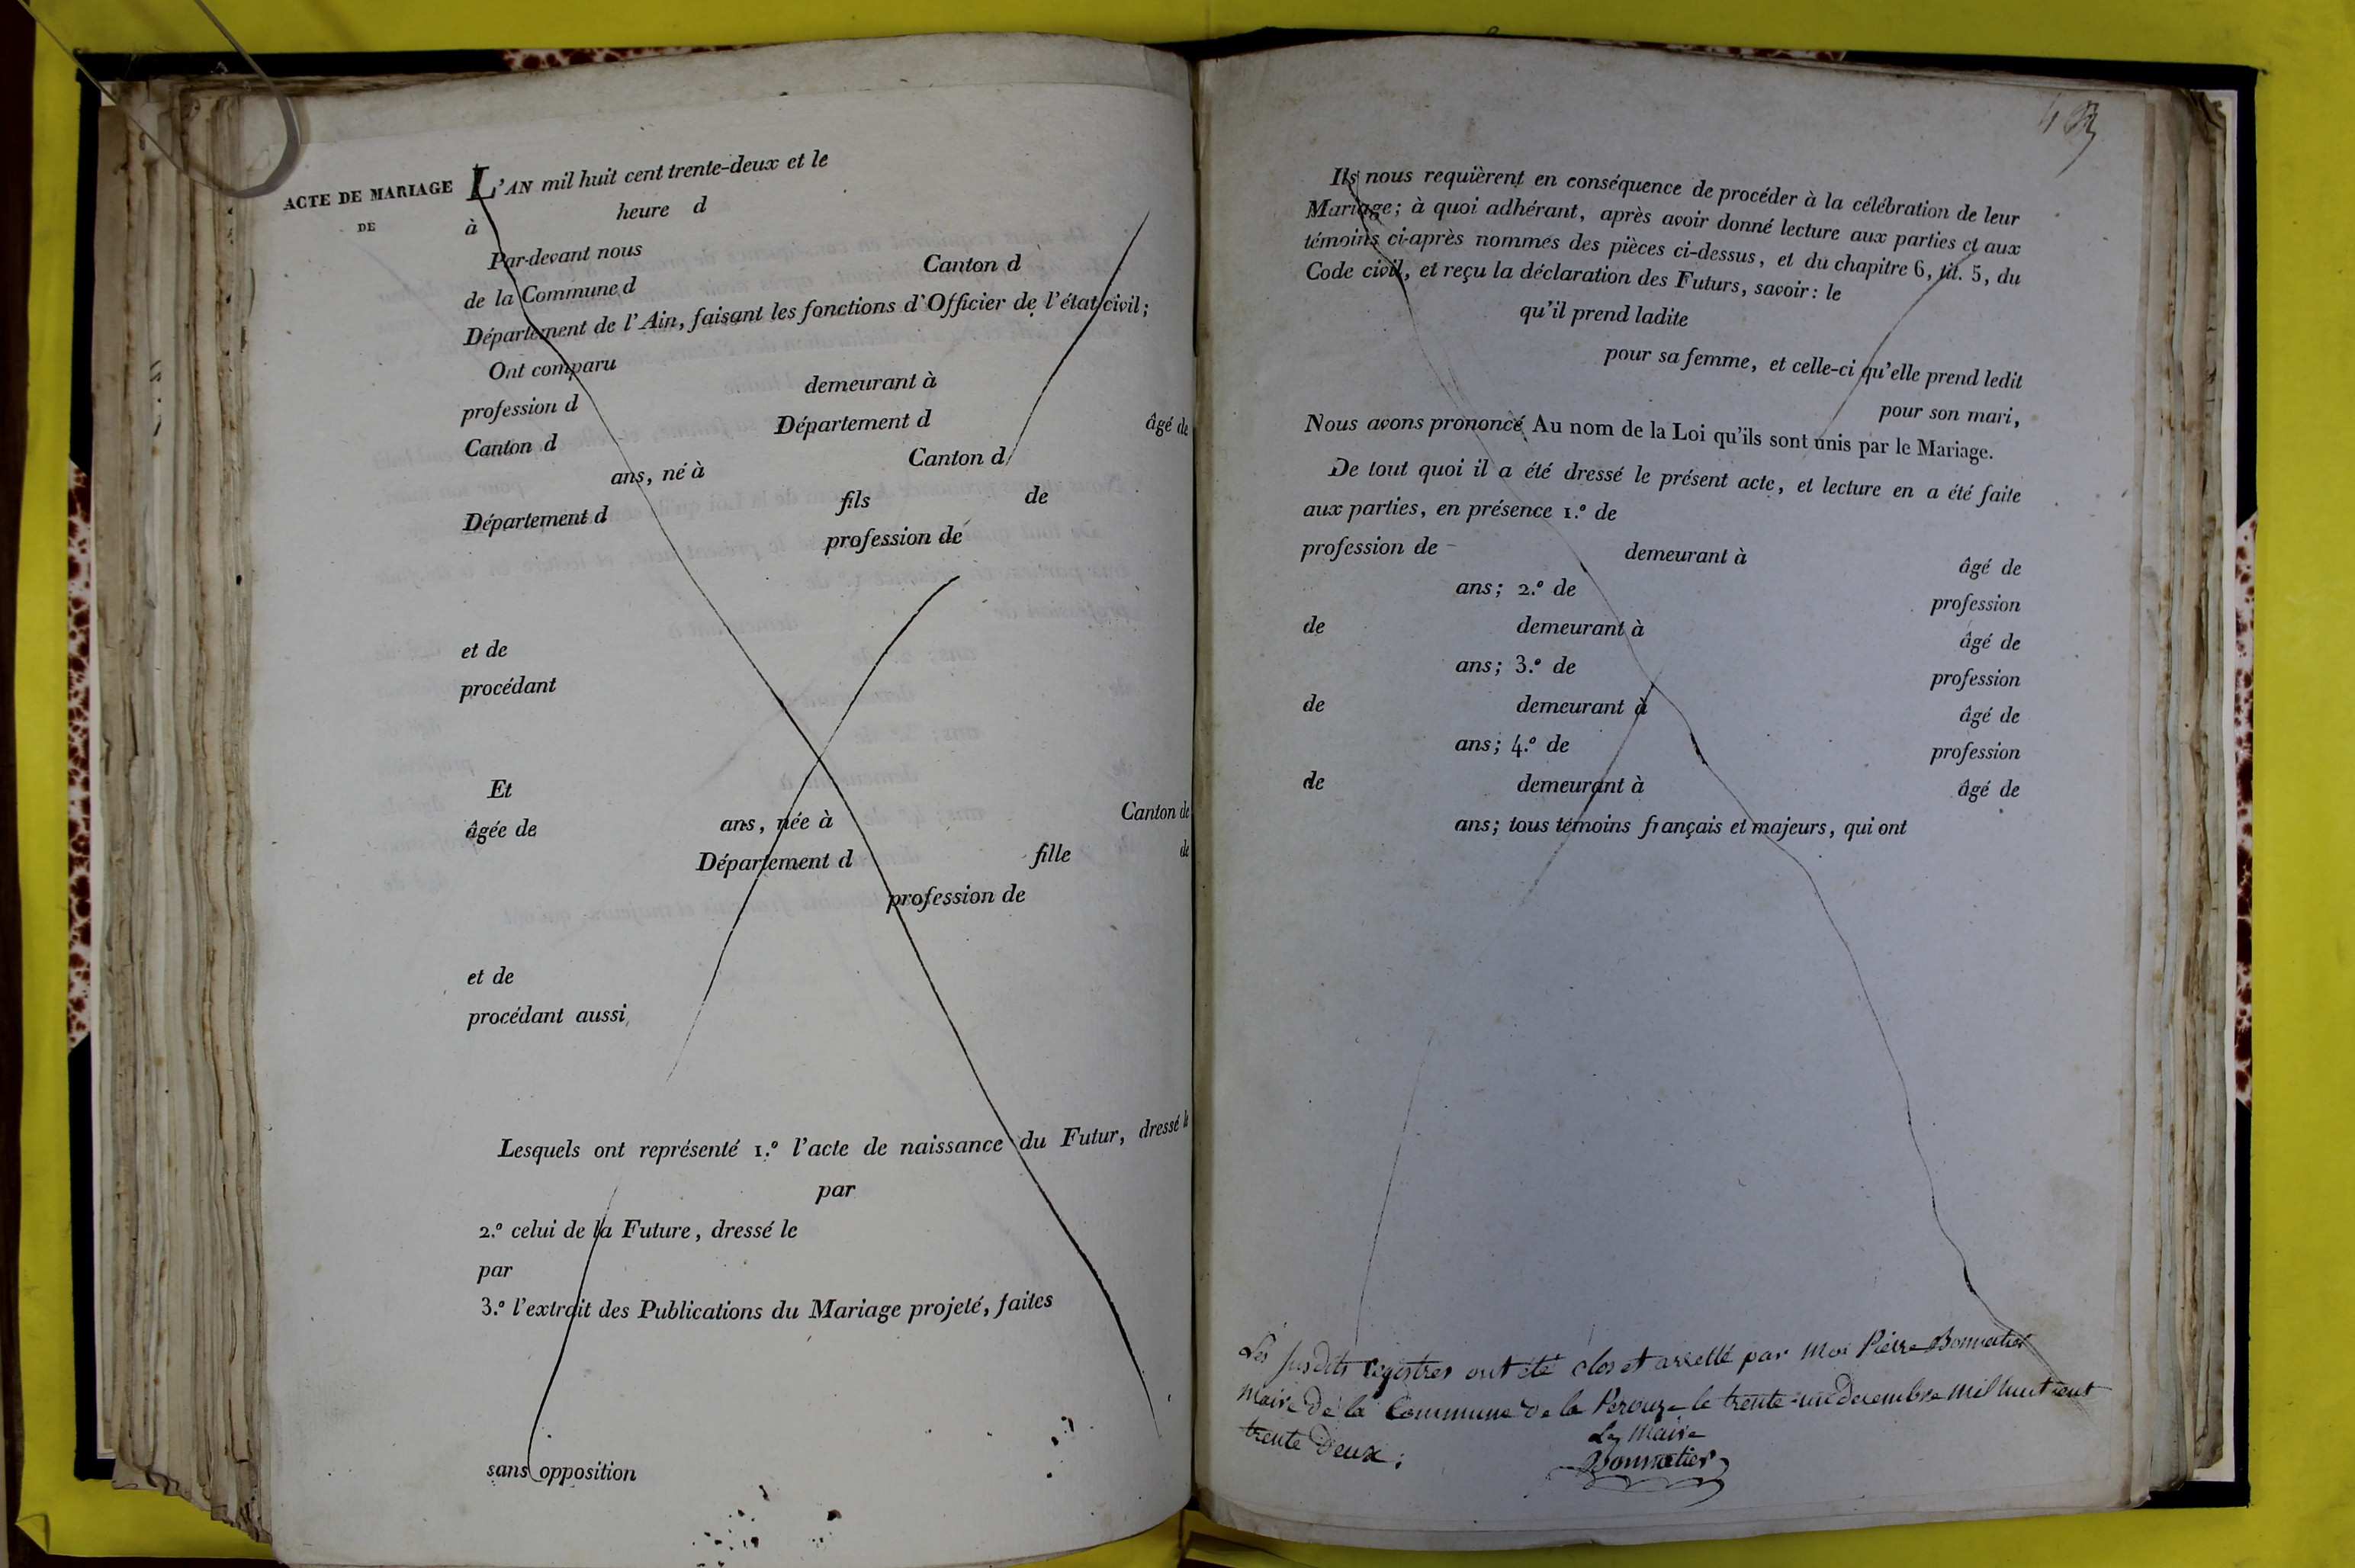 ACTE DE MARIAGE
DE
L'AN mil huit cent trente-deux et le
à heure d
Par-devant nous
de la Commune d Canton d
Département de l'Ain, faisant les fonctions d'Officier de l'état civil;
Ont comparu
profession d demeurant à
Canton d Département d âgé de
ans, né à Canton d
Département d fils de
profession de
et de
procédant
Et
âgée de ans, née à Canton de
Département d fille de
profession de
et de
procédant aussi
Lesquels ont représenté 1.º l'acte de naissance du Futur, dressé le
par
2.º celui de la Future, dressé le
par
3.º l'extrait des Publications du Mariage projeté, faites
sans opposition
Ils nous requièrent en conséquence de procéder à la célébration de leur
Mariage; à quoi adhérant, après avoir donné lecture aux parties et aux
témoins ci-après nommés des pièces ci-dessus, et du chapitre 6, tit. 5, du
Code civil, et reçu la déclaration des Futurs, savoir: le
qu'il prend ladite
pour sa femme, et celle-ci qu'elle prend ledit
pour son mari,
Nous avons prononcé Au nom de la Loi qu'ils sont unis par le Mariage.
De tout quoi il a été dressé le présent acte, et lecture en a été faite
aux parties, en présence 1.º de
profession de demeurant à âgé de
ans; 2.º de profession
de demeurant à âgé de
ans; 3.º de profession
de demeurant à âgé de
ans; 4.º de profession
de demeurant à âgé de
ans; tous témoins français et majeurs, qui ont
Les susdits registres ont été clos et arretté par Moi Pierre Bonnatier
Maire de la Commune de la Perouze le trente-un decembre Mil huit cent
trente deux;
Le Maire
Bonnatier